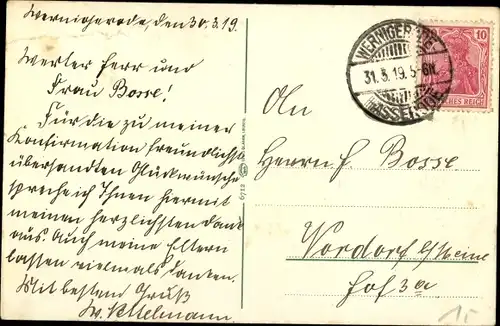 Wernigerode, den 30.3.19.
Werter Herr und
Frau Bosse!
Für die zu meiner
Konfirmation freundlichst
übersandten Glückwünsche
spreche ich Ihnen hiermit
meinen herzlichsten Dank
aus. Auch meine Eltern
lassen vielmals danken.
Mit bestem Gruß
W.
WERNIGERODE
31.3.19. 5-6N.
HASSERODE
10
DEUTSCHES REICH
An
Herrn F. Bosse
Vordorf
Hof 3a
6722
15